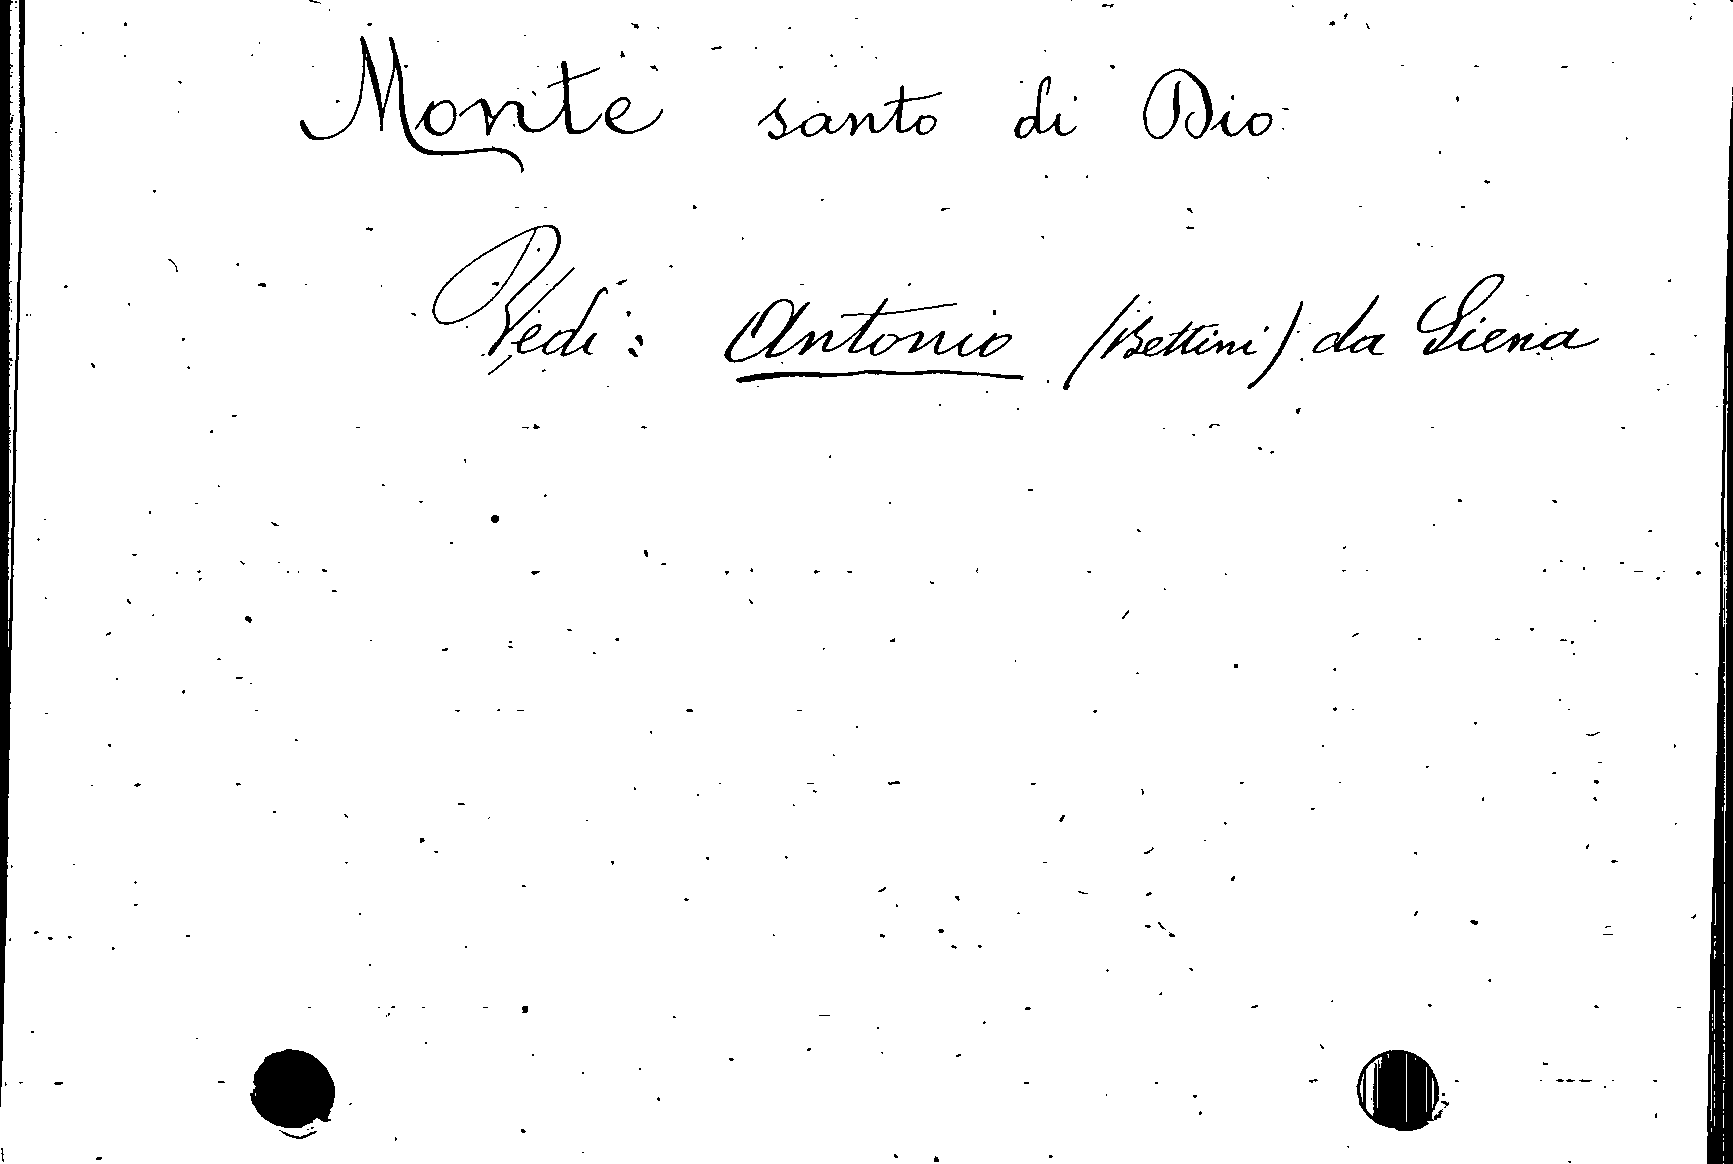 Monte santo di Dio
Vedi: Antonio (Bettini) da Siena